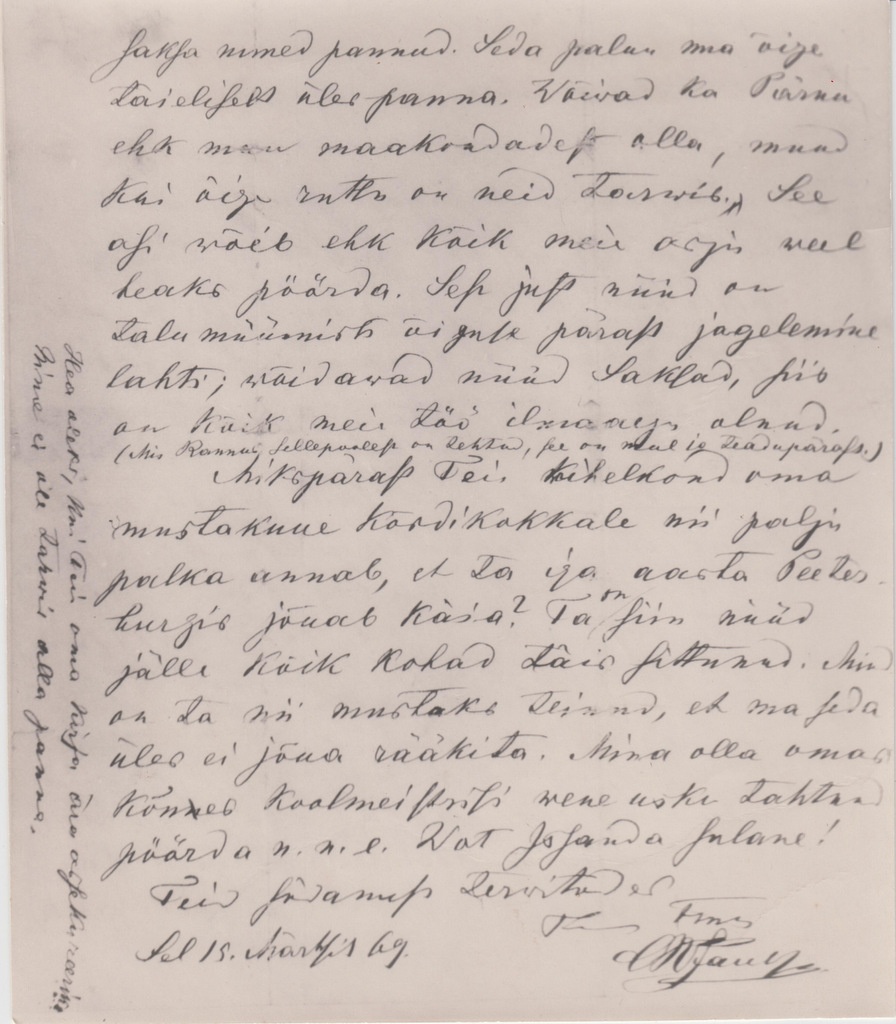 saksa nimed pannud. Seda palun ma õige
täielisest üles panna. Wõiwad ka Pärnu
ehk muu maakondadest olla, muud
kui õige ruttu on neid tarwis. See
asi wõib ehk kõik meie asju weel
heaks pöörda. Sest just nüüd on
talu müümisti õiguse pärast jagelemine
lahti; wõidawad nüüd Saksad, siis
on kõik meie töö ilma aegu olnud.
(Mis Rannus sellepoolest on tehtud, see on mul ig teadupärast.)
Mikspärast Teie kihelkond oma
mustakuue kördikokkale nii palju
palka annab, et ta iga aasta Peeter-
burgis jõuab käia? Ta on siin nüüd
jälle kõik kohad täis sittunud. Mind
on ta nii mustaks teinud, et ma seda
üles ei jõua rääkita. Mina olla omas
kõnnes koolmeistrisi wene usku tahtnud
pöörda n. n. e. Wot Jssanda sulane!
Teid südamest terwitades
Sel 15. Märtsil 69.
Hea oleks, kui Teie oma kirja ära
Nime ei ole tarwis alla panna.